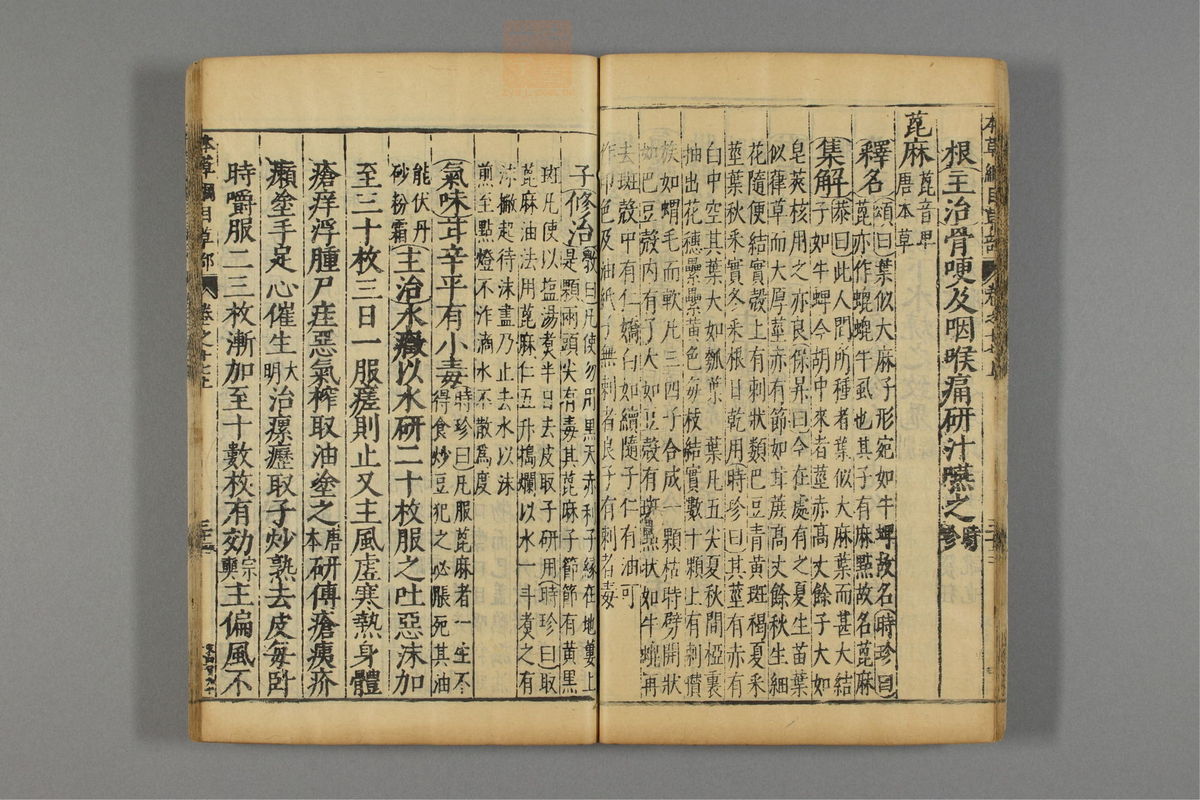 根主治骨哽及咽喉痛研汁嚥之時珍
蓖麻蓖音卑唐本草
釋名頌曰葉似大麻子形宛如牛蜱故名時珍曰
蓖亦作螕螕牛虱也其子有麻點故名蓖麻
集解恭曰此人間所種者葉似大麻葉而甚大結
子如牛蜱今胡中來者莖赤高丈餘子大如
皂莢核用之亦良保昇曰今在處有之夏生苗葉
似葎草而大厚莖赤有節如甘蔗高丈餘秋生細
花隨便結實殼上有刺狀類巴豆青黃斑褐夏采
莖葉秋采實冬采根日乾用時珍曰其莖有赤有
白中空其葉大如瓠葉葉凡五尖夏秋間椏裏
抽出花穗纍纍黃色每枝結實數十顆上有刺攢
簇如蝟毛而軟凡三四子合成一顆枯時劈開狀
如巴豆殼內有子大如豆殼有斑點狀如牛螕再
去斑殼中有仁嬌白如續隨子仁有油可
作印色及油紙子無刺者良子有刺者毒
子修治斆曰凡使勿用黑天赤利子緣在地蔞上
是顆兩頭尖有毒其蓖麻子節節有黃黑
斑凡使以塩湯煮半日去皮取子研用時珍曰取
蓖麻油法用蓖麻仁五升搗爛以水一斗煮之有
沫撇起待沫盡乃止去水以沫
煎至點燈不炸滴水不散爲度
氣味甘辛平有小毒時珍曰凡服蓖麻者一生不
得食炒豆犯之必脹死其油
能伏丹砂粉霜主治水癥以水研二十枚服之吐惡沫加
至三十枚三日一服瘥則止又主風虛寒熱身體
瘡痒浮腫尸疰惡氣榨取油塗之唐本研傅瘡痍疥
癩塗手足心催生大明治瘰癧取子炒熟去皮每卧
時嚼服二三枚漸加至十數枚有効宗奭主偏風不
本草綱目草部
卷之十七上